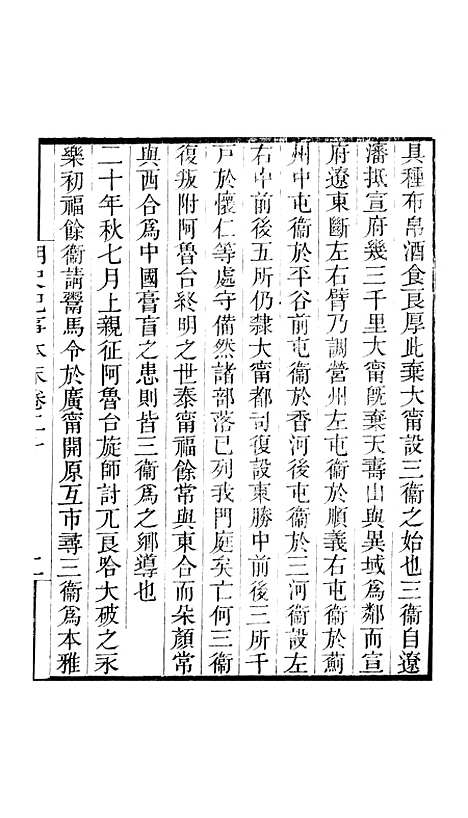 具種布帛酒食良厚此棄大甯設三衞之始也三衞自遼
瀋抵宣府幾三千里大甯旣棄天壽山與異域爲鄰而宣
府遼東斷左右臂乃調營州左屯衞於順義右屯衞於薊
州中屯衞於平谷前屯衞於香河後屯衞於三河衞設左
右中前後五所仍隸大甯都司復設東勝中前後三所千
戸於懷仁等處守備然諸部落已列我門庭矣亡何三衞
復叛附阿魯台終明之世泰甯福餘常與東合而朵顏常
與西合爲中國膏肓之患則皆三衞爲之鄉導也
二十年秋七月上親征阿魯台旋師討兀良哈大破之永
樂初福餘衞請鬻馬令於廣甯開原互市尋三衞爲本雅
明史紀事本末卷二十 二